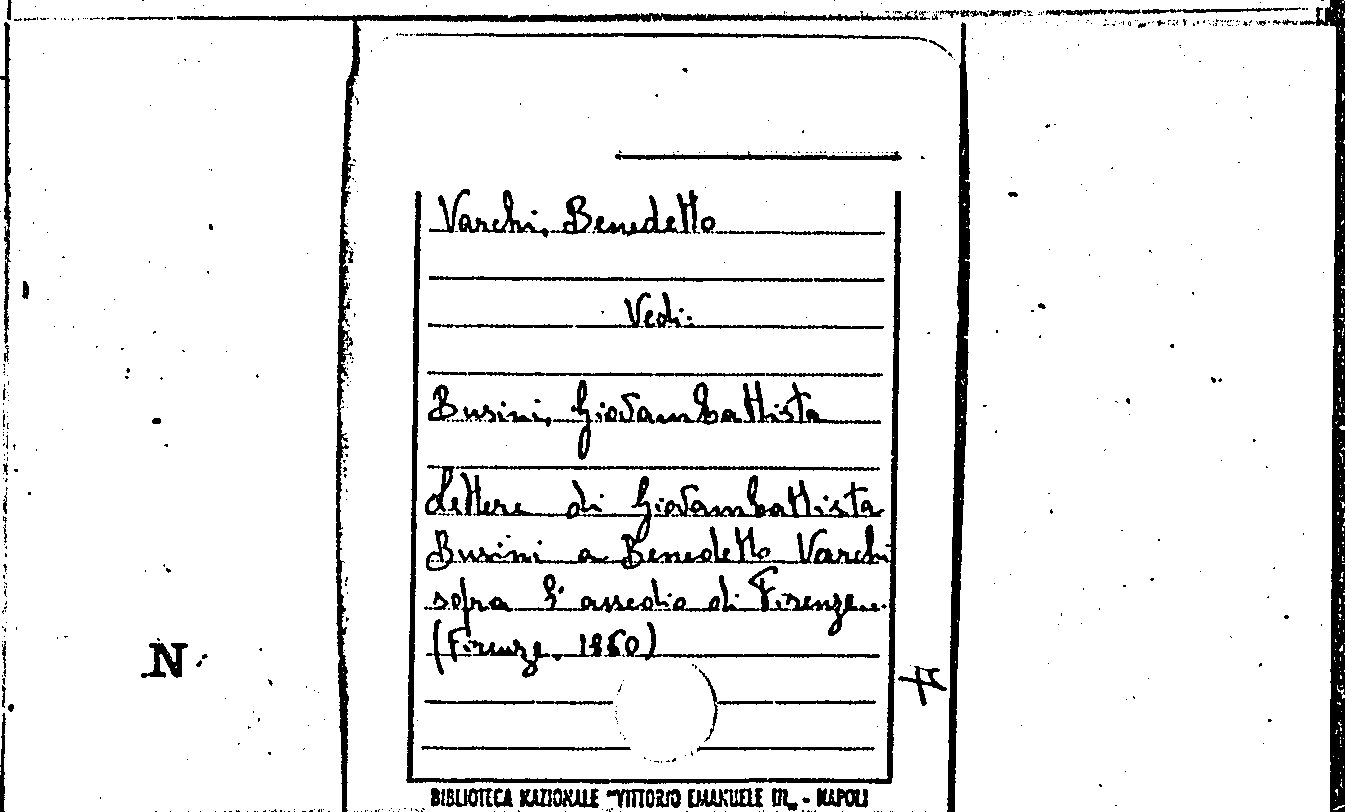 Varchi, Benedetto
Vedi:
Busini, Giovambattista
Lettere di Giovambattista
Busini a Benedetto Varchi
sopra l'assedio di Firenze..
(Firenze, 1860)
N
BIBLIOTECA NAZIONALE "VITTORIO EMANUELE III" - NAPOLI